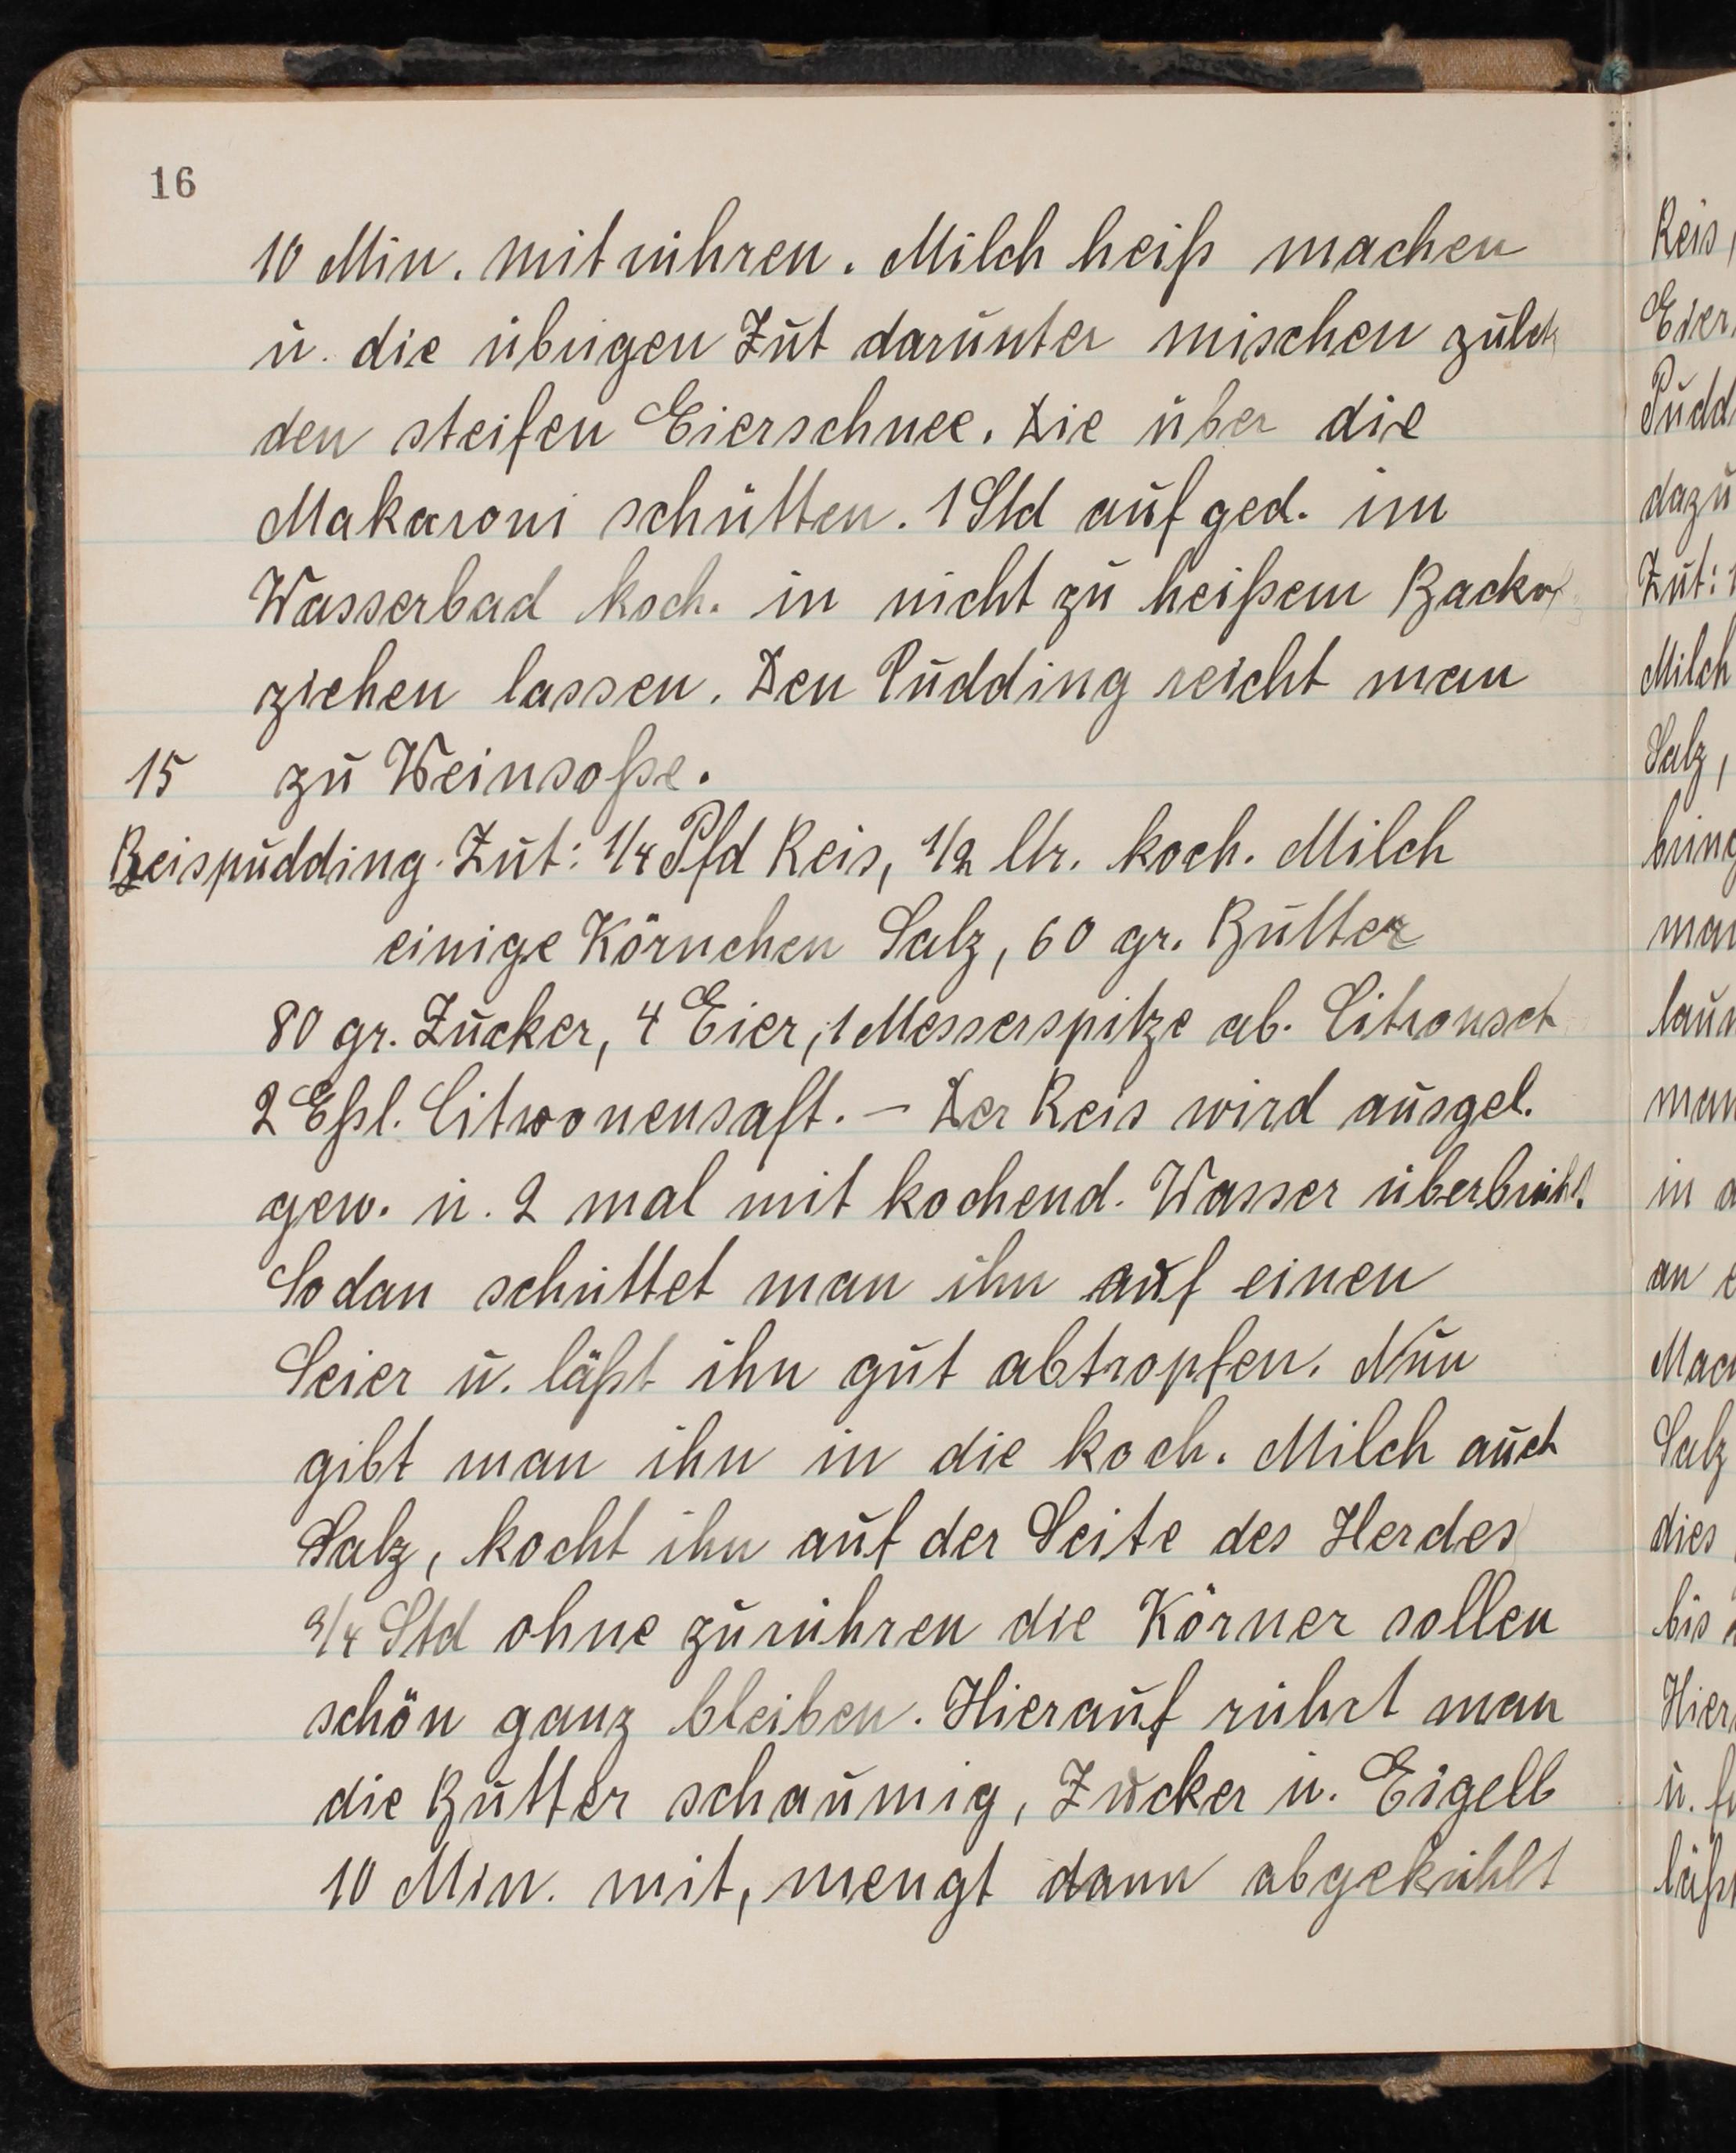 16
10 Min. mit rühren. Milch heiß machen
u. die übrigen Zut darunter mischen zulet
den steifen Eierschnee. Die über die
Makaroni schütten. 1 Std auf ged. im
Wasserbad koch. in nicht zu heißem Backo
ziehen lassen. Den Pudding reicht man
15 zu Weinsoße.
Reispudding. Zut: 1/4 Pfd Reis, 1/2 ltr. koch. Milch
einige Körnchen Salz, 60 gr. Butter
80 gr. Zucker, 4 Eier, 1 Messerspitze ab. Citronsch
2 Eßl. Citronensaft. – Der Reis wird ausgel.
gew. u. 2 mal mit kochend. Wasser überbrüht.
Sodan schüttet man ihn auf einen
Seier u. läßt ihn gut abtropfen. Nun
gibt man ihn in die koch. Milch auch
Salz, kocht ihn auf der Seite des Herdes
3/4 Std ohne zurühren die Körner sollen
schön ganz bleiben. Hierauf rührt man
die Butter schaumig, Zucker u. Eigelb
10 Min. mit, mengt dann abgekühlt
Reis,
Eier,
Pudd
dazu
Zut: 1
Milch
Salz,
bring
man
laun
man
in a
an e
Mach
Salz
dies
bis
Hier
u. fe
läßt